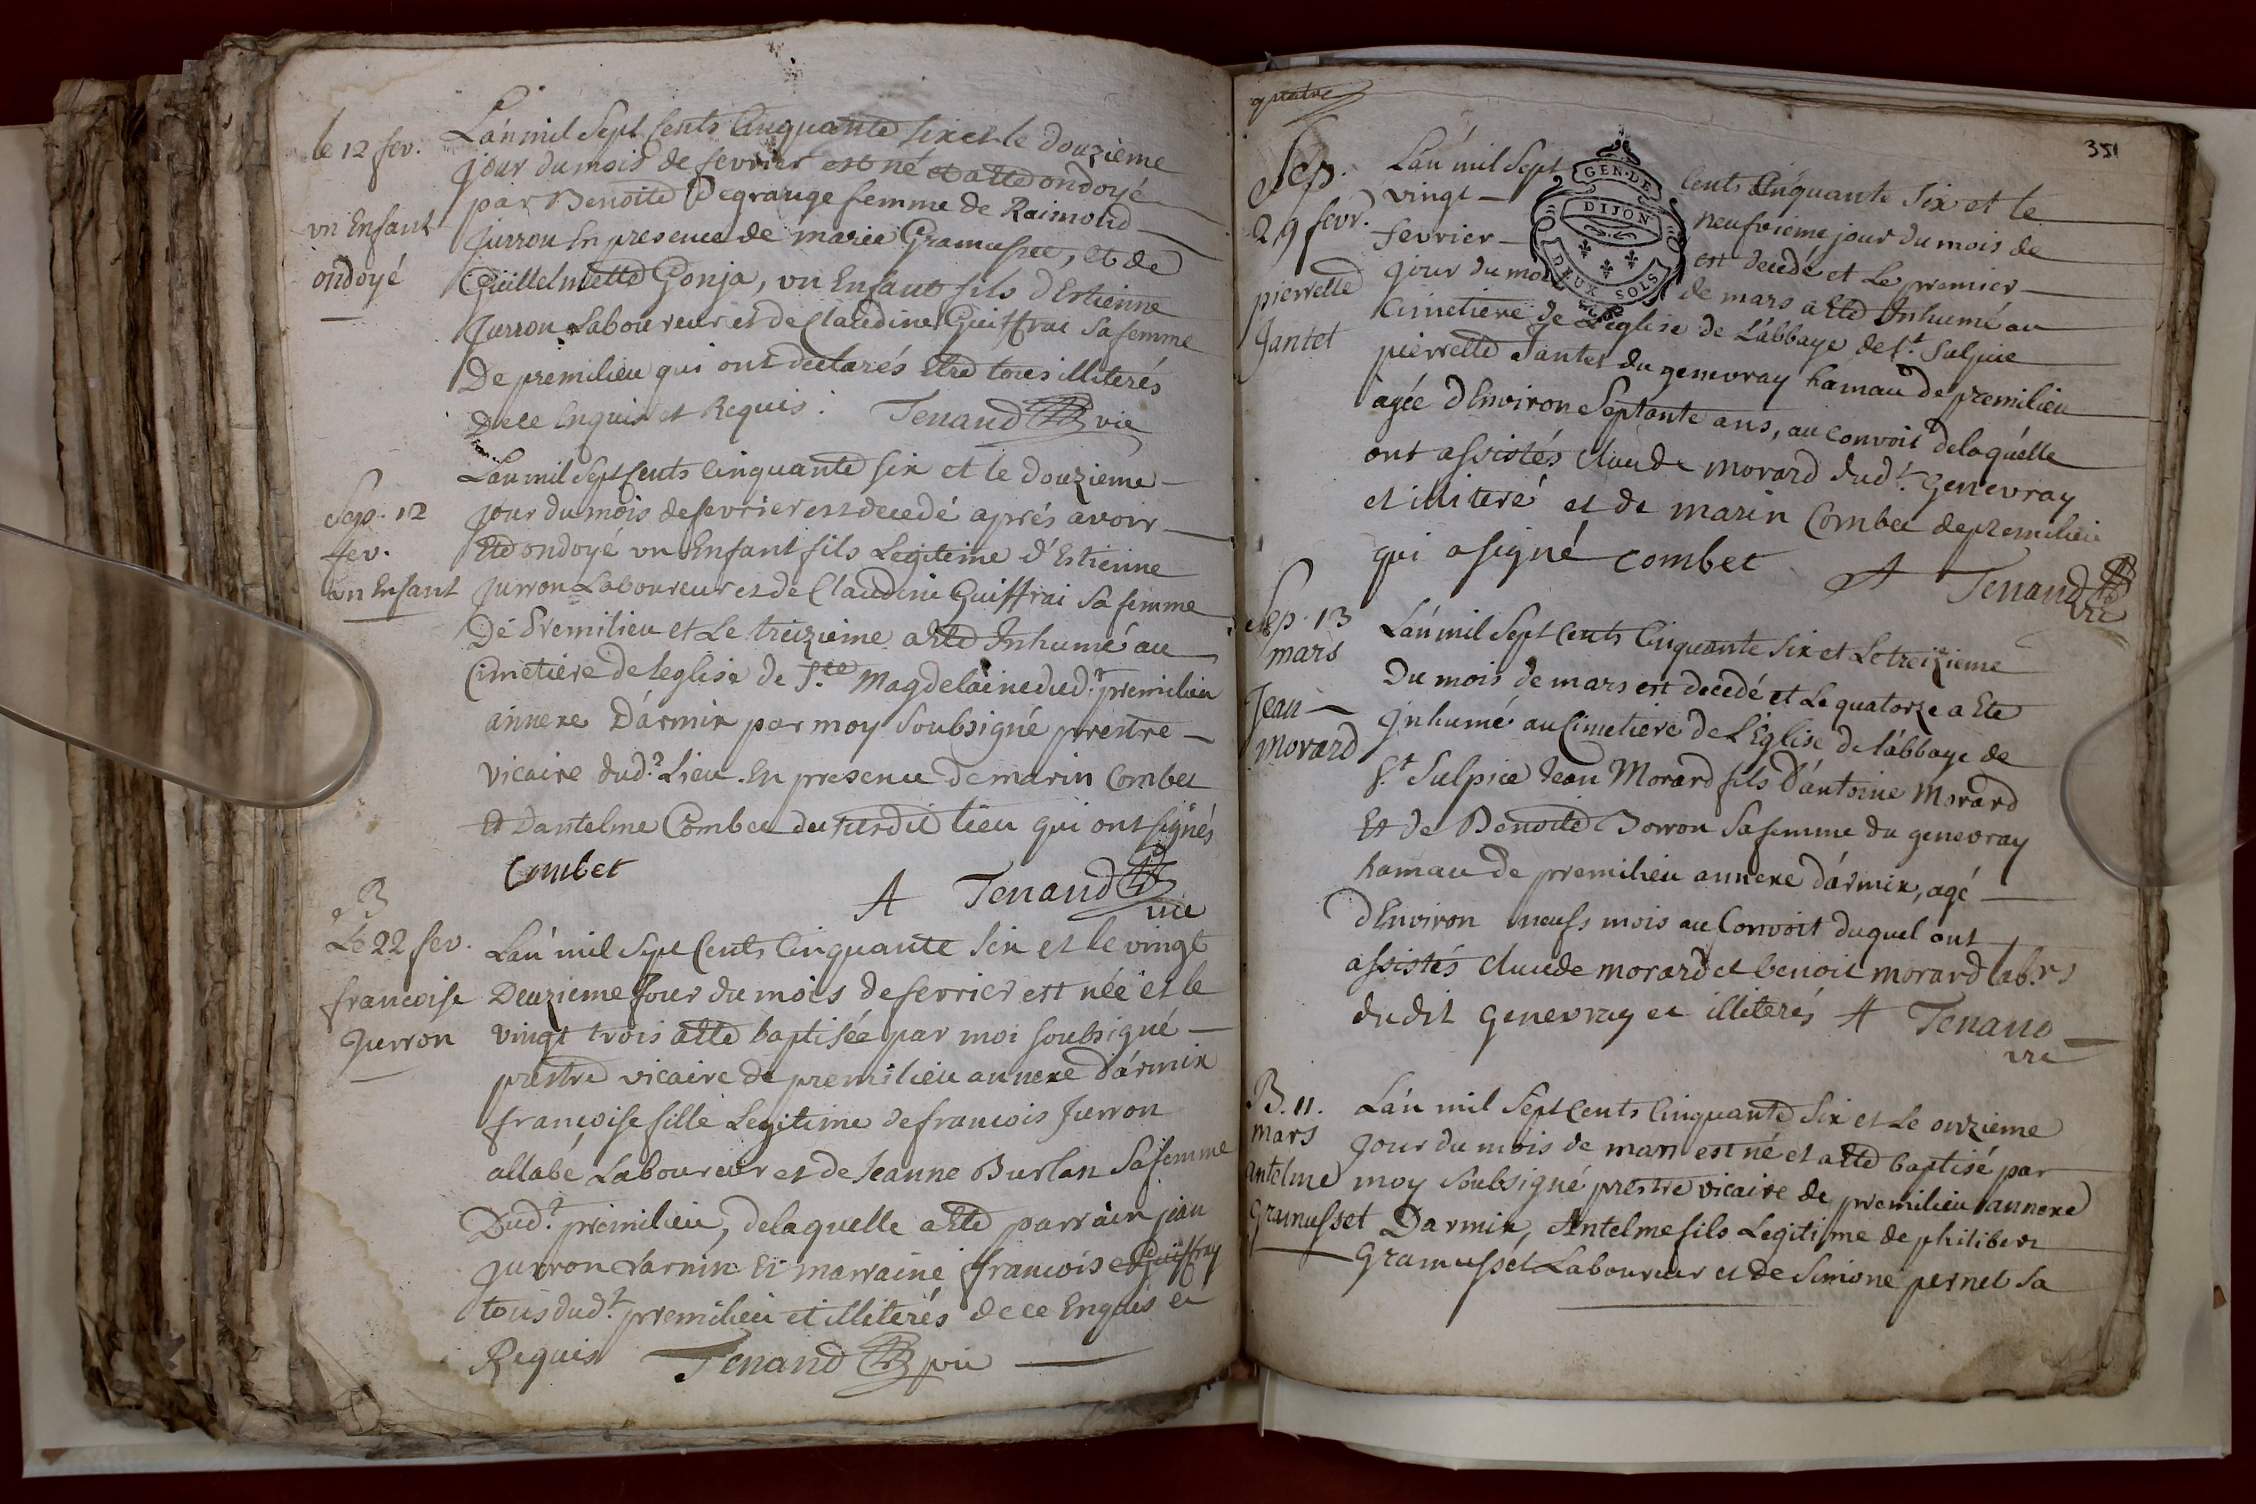 le 12 fev.
un Enfant
ondoyé
L'an mil Sept Cents Cinquante six et le douzieme
jour du mois de fevrier est né et a Eté ondoyé
par Benoite Degrange femme de Raimond
Jurron En presence de marie Gramusset, et de
Guillelmette Gonja, un Enfant fils d'Estienne
Jurron Laboureur et de Claudine Guiffrai Sa femme
De premilieu qui ont declarés Etre tous illiterés
De ce Enquis et Requis. Tenand vic
Sep. 12
fev.
un Enfant
L'an mil Sept Cents Cinquante six et le douzieme
jour du mois de fevrier est decedé aprés avoir
Eté ondoyé un Enfant fils Legiteime d'Estienne
Jurron Laboureur et de Claudine Guiffrai Sa femme
De Premilieu et Le treizieme a Eté Inhumé au
Cimetiere de leglise de Ste Magdelaine dud.t premilieu
annexe D'armix par moy Soubsigné prestre
vicaire dud.t Lieu. En presence de marin Combet
Et Dantelme Combet du susdit lieu qui ont signés
Combet
A Tenand vic
B
Le 22 fev.
francoise
Jurron
L'an mil Sept Cents Cinquante Six et le vingt
Deuzieme Jour du mois de fevrier est née et le
vingt trois a Eté baptisée par moi Soubsigné
prestre vicaire de premilieu annexe d'armix
françoise fille Legitime de francois Jurron
allabé Laboureur et de Jeanne Burlat Sa femme
Dud.t premilieu, de laquelle a Eté parrain jean
Jurron Et marraine francoise Guiffray
tous dud.t premilieu et illiterés de ce Enquis et
Requis Tenand vic
quatre
351
GEN. DE
DIJON
DEUX SOLS
Sep.
29 fevr.
pierrette
Jantet
L'an mil Sept Cents Cinquante Six et le
vingt neufvieme jour du mois de
fevrier est decedé et Le premier
jour du mois de mars a Eté Inhumé au
Cimetiere de L'eglise de L'abbaye de S.t Sulpice
pierrette Jantet du genevray hamau de premilieu
agée d'Environ Septante ans, au convoit de laquélle
ont assistés claude morard dud.t Genevray
et illiteré et de marin Combet de premilieu
qui a signé Combet
A Tenand vic
Sep. 13
mars
Jean
Morard
L'an mil Sept Cents Cinquante Six et Le treizieme
Du mois de mars est decedé et Le quatorze a Eté
Inhumé au Cimetiere de L'Eglise de l'abbaye de
S.t Sulpice Jean Morard fils D'antoine Morard
Et de Benoite Borron Sa femme du genevray
hamau de premilieu annexe d'armix, agé
d'Environ neufs mois au Convoit duquel ont
assistés claude morard et benoit morard lab.rs
dudit Genevray et illiterés A Tenand
vic
B. 11.
mars
Antelme
Gramusset
L'an mil Sept Cents Cinquante Six et Le onzieme
Jour du mois de mars est né et a Eté baptisé par
moy Soubsigné prestre vicaire de premilieu annexe
Darmix, Antelme fils Legitime de philibert
Gramusset Laboureur et de Simone pernet Sa